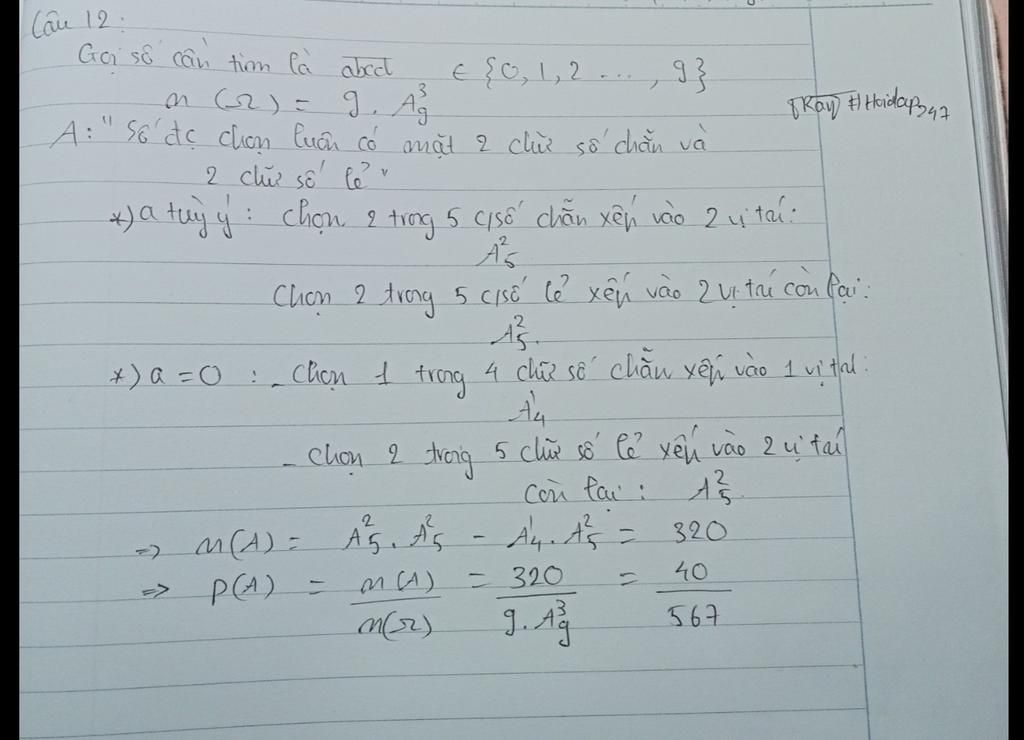 Câu 12:
Gọi số cần tìm là abcd ∈ {0, 1, 2 ..., 9}
n (Ω) = 9. A³₉
Hoidap247
A: " Số đc chọn luôn có mặt 2 chữ số chẵn và
2 chữ số lẻ "
*) a tuỳ ý : Chọn 2 trong 5 c/số chẵn xếp vào 2 vị trí:
A²₅
Chọn 2 trong 5 c/số lẻ xếp vào 2 vị trí còn lại:
A²₅.
*) a = 0 : - Chọn 1 trong 4 chữ số chẵn xếp vào 1 vị trí:
A¹₄
- Chọn 2 trong 5 chữ số lẻ xếp vào 2 vị trí
còn lại : A²₅
=> n(A) = A²₅. A²₅ - A¹₄. A²₅ = 320
=> P(A) = n(A)/n(Ω) = 320/9. A³₉ = 40/567